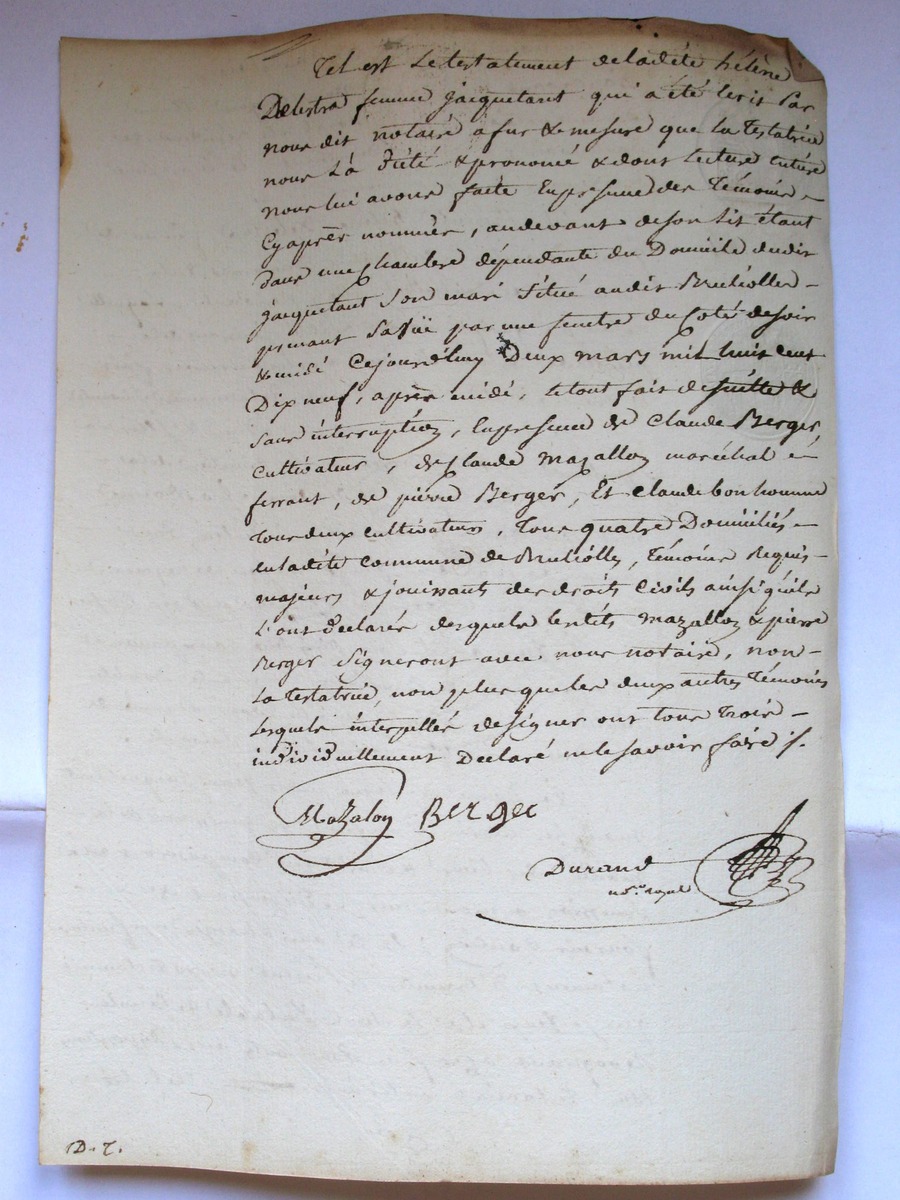 Tel est Le testatement deladite hélène
Delestra femme jacquetant qui a été écrit par
nous dit notaire a fur & mesure que la Testatrice
nous L'a dicté & prononcé & dont lecture entière
nous lui avons faite En presence des Témoins –
Cy après nommés, audevant de son Lit étant
dans une chambre dépendante du Domicile dudit
jacquetant son mari situé audit Bruliolles –
prenant sa vüe par une fenetre du Coté de soir
& midi Cejourd'huy Deux mars mil huit cent
Dix neuf, après midi, le tout fait de suitte &
sans interruption, En presence de Claude Berger
cultivateur, de Claude Mazallon maréchal é
ferrant, de pierre Berger, Et Claude bonhomme
tous deux cultivateurs, Tous quatre Domiciliés –
en ladite commune de Brulliolles, Témoins Requis –
majeurs & jouissants des droits Civils ainsi qu'ils
L'ont déclarés desquels lesdits Mazallon & pierre
Berger signeront avec nous notaire, non –
La testatrice, non plus que les deux autres Témoins
Lesquels interpellés de signer ont tous Trois –
individuellement Declaré ne le savoir faire ./.
Mazalon Berger
Durand
no.re royal
D. T.